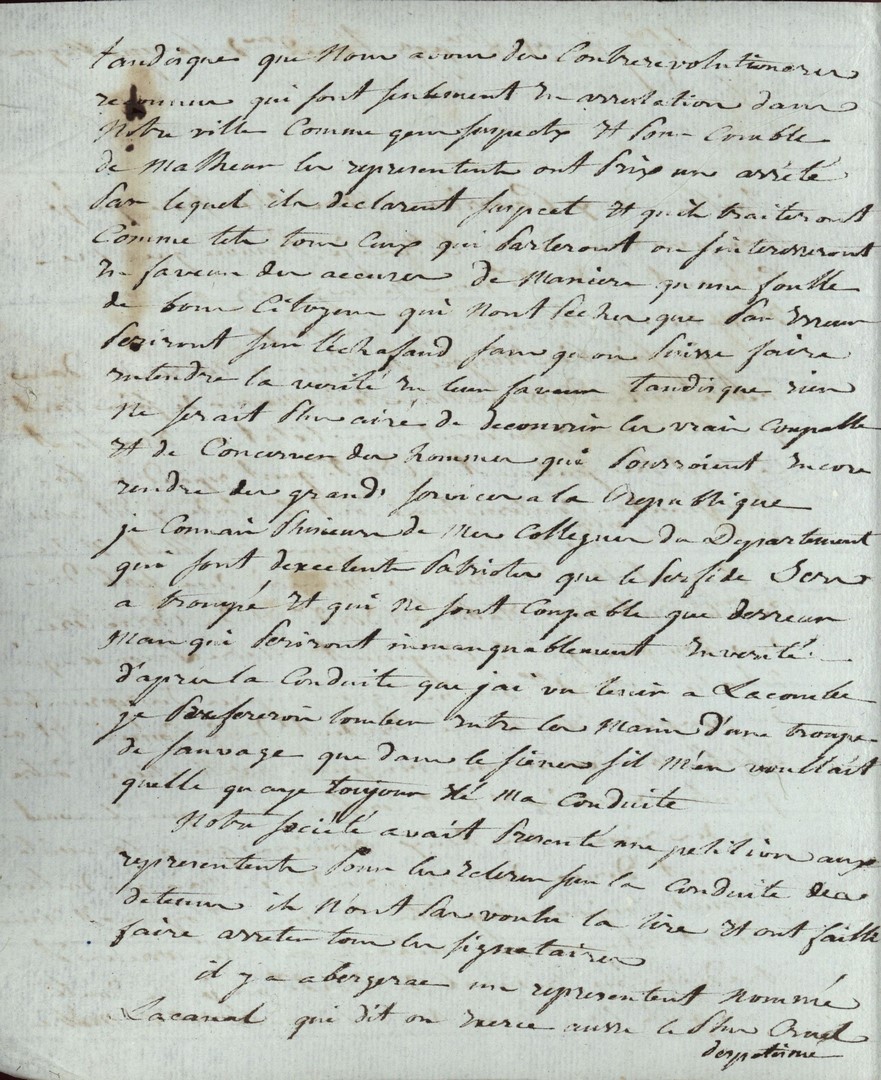 tandisque que Nous avons des Contrerevolutionaires
reconnus qui sont seulement En arrestation dans
Notre ville Comme gens suspects Et pour Comble
de Malheur les representents ont Prix un arrété
Par lequel ils déclarent suspect Et quils traiteront
Comme tels tous Ceux qui Parleront ou sinteresseront
En faveur des accusés de Maniere qu une foulle
de bons Citoyens qui Nont Péchés que Par Erreur
Periront sur Léchafaud sans qu on Puisse faire
entendre la verité En leur faveur tandisque rien
Ne serait Plus aisé de decouvrir les vrais Coupable
Et de Concerver des hommes qui Pourroient Encore
rendre des grands services a la Republique
je Connais Plusieurs de Mes Collegues du Departement
qui sont dexcelents Patriotes que le Perfide Sers
a trompé Et qui Ne sont Coupable que derreur
Mais qui Periront inmanquablement En verité
d'après la Conduite que j'ai vu tenir a Lacombe
je Prefererois tomber entre les Mains d'une troupe
de sauvage que dans les sienes sil M'en voullait
quelle qu aye toujour été Ma Conduite
Notre société avait Presenté une petition aux
representents Pour les Eclerer sur la Conduite des
detenus ils N'ont Pas voulu la lire Et ont faillé
faire arreter tous les signataires
il y a a bergerac un representent Nommé
Lacanal qui dit on Exerce aussi le Plus Cruel
despotisme